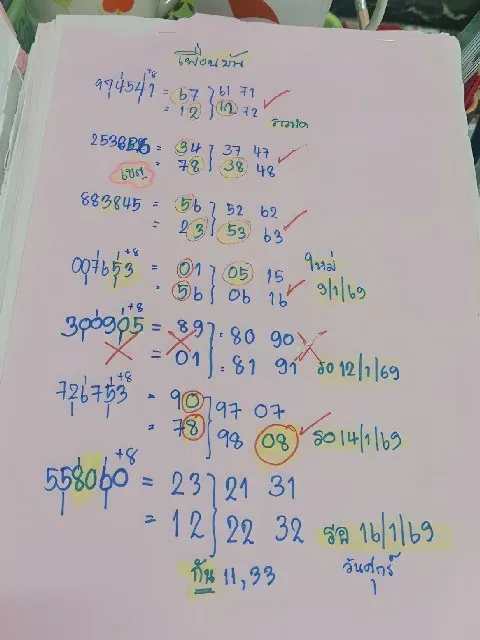 เพื่อนบ้าน
974541 +8 = 67 } 61 71
= 12 } 12 72 ✓
= 34 } 37 47
= 78 } 38 48 ✓
883845 = 56 } 52 62
= 23 } 53 63 ✓
007653 +8 = 01 } 05 15 ใหม่
= 56 } 06 16 ✓ 9/1/69
300905 +8 = 89 } 80 90
= 01 } 81 91 รอ 12/1/69
726753 +8 = 90 } 97 07
= 78 } 98 08 ✓ รอ 14/1/69
558060 +8 = 23 } 21 31
= 12 } 22 32 รอ 16/1/69
กัน 11,33 วันศุกร์